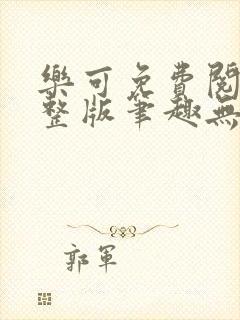 樂可免費閱
整版筆趣無
郭軍